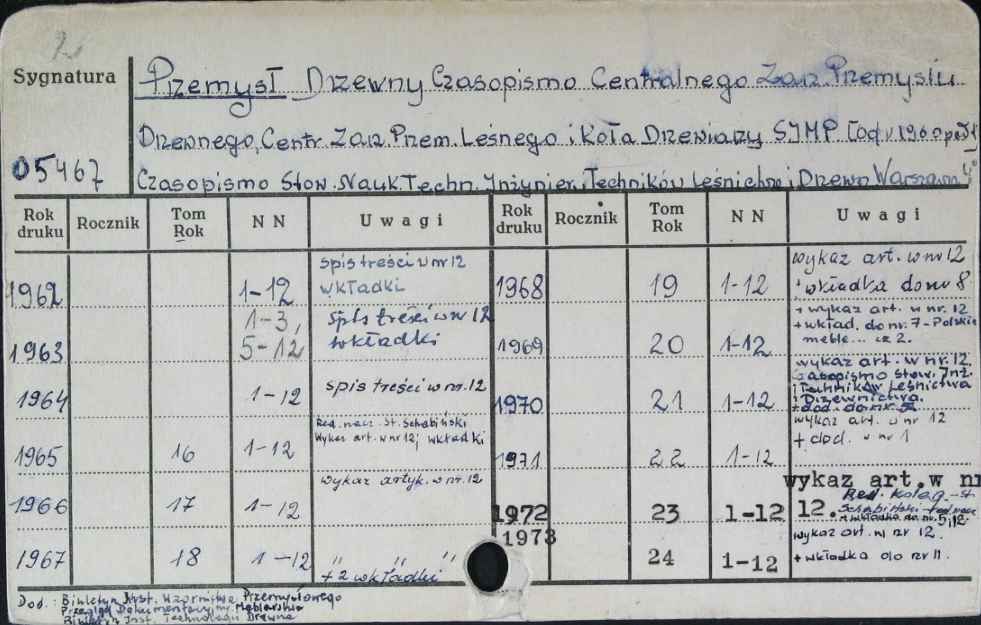 Sygnatura
Przemysł Drzewny Czasopismo Centralnego Zarz. Przemysłu
Drzewnego, Centr. Zarz. Przem. Leśnego i Koła Drzewiarzy SIMP. [od
05467
Czasopismo Stow. Nauk. Techn. Inżynier. i Techników Leśnictwa i Drzewn. Warszawa 4°
Rok druku Rocznik Tom Rok NN Uwagi Rok druku Rocznik Tom Rok NN Uwagi
1962 1-12 spis treści w nr 12 wkładki
1963 1-3, 5-12 spis treści w nr 12 wkładki
1964 1-12 spis treści w nr. 12
1965 16 1-12 Red. nacz. St. Schabiński Wykaz art. w nr 12; wkładki
1966 17 1-12 wykaz artyk. w nr. 12
1967 18 1-12 " " " + 2 wkładki
1968 19 1-12 wykaz art. w nr 12 wkładka do nr 8
1969 20 1-12 + wykaz art. w nr. 12 + wkład. do nr. 7 - Polskie meble... cz 2.
1970 21 1-12 wykaz art. w nr. 12. Czasopismo Stow. Inż. i Techników Leśnictwa i Drzewnictwa. + dod. do nr.
1971 22 1-12 wykaz art. w nr 12 + dod. w nr 1
1972 23 1-12 wykaz art. w nr 12. Red. koleg. - st. Schabiński + wkładka do nr. 5, 12.
1973 24 1-12 wykaz art. w nr 12. + wkładka do nr 11.
Dod.: Biuletyn Inst. Wzornictwa Przemysłowego
Przegląd Dokumentacyjny Meblarstwa
Biuletyn Inst. Technologii Drewna